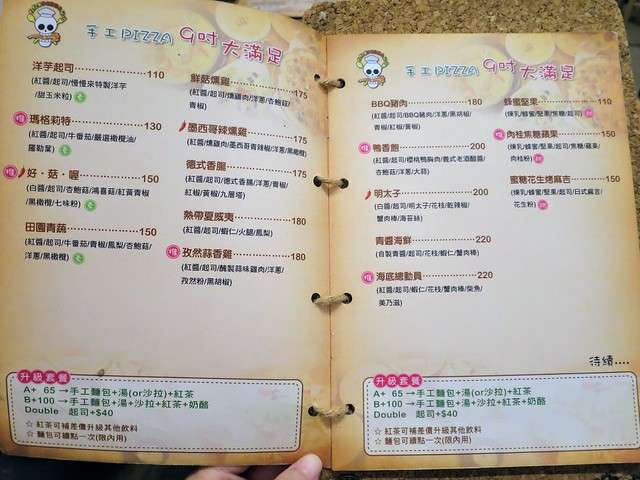 手工PIZZA 9吋大滿足
洋芋起司 110
(紅醬/起司/慢慢來特製洋芋
/甜玉米粒)
推 瑪格莉特 130
(紅醬/起司/牛番茄/嚴選橄欖油/
羅勒葉)
推 好・菇・喔 150
(白醬/起司/杏鮑菇/鴻喜菇/紅黃青椒
/黑橄欖/七味粉)
田園青蔬 150
(紅醬/起司/牛番茄/青椒/鳳梨/杏鮑菇/
洋蔥/黑橄欖)
鮮菇燻雞 175
(紅醬/起司/燻雞肉/洋蔥/杏鮑菇/
青椒)
墨西哥辣燻雞 175
(紅醬/燻雞肉/墨西哥青辣椒/洋蔥/黑橄欖)
德式香腸 175
(紅醬/起司/德式香腸/洋蔥/青椒/
紅椒/黃椒/九層塔)
熱帶夏威夷 180
(紅醬/起司/蝦仁/火腿/鳳梨)
推 孜然蒜香雞 180
(紅醬/起司/醃製蒜味雞肉/洋蔥/
孜然粉/黑胡椒)
升級套餐
A+ 65 →手工麵包+湯(or沙拉)+紅茶
B+100 →手工麵包+湯+沙拉+紅茶+奶酪
Double 起司+$40
☆ 紅茶可補差價升級其他飲料
☆ 麵包可續點一次(限內用)
手工PIZZA 9吋大滿足
BBQ豬肉 180
(紅醬/起司/BBQ豬肉/洋蔥/黑胡椒/
青椒/紅椒/黃椒)
推 鴨香飽 200
(紅醬/起司/櫻桃鴨胸肉/義式老酒醋醬/
杏鮑菇/洋蔥/大蒜)
推 明太子 200
(白醬/起司/明太子/花枝/乾辣椒/
蟹肉棒/海苔絲)
青醬海鮮 220
(自製青醬/起司/花枝/蝦仁/蟹肉棒)
推 海底總動員 220
(紅醬/起司/蝦仁/花枝/蟹肉棒/柴魚/
美乃滋)
蜂蜜堅果 110
(煉乳/蜂蜜/堅果/焦糖/起司)
推 肉桂焦糖蘋果 150
(煉乳/蜂蜜/堅果/起司/焦糖/蘋果/
肉桂粉)
蜜糖花生烤麻吉 150
(煉乳/蜂蜜/堅果/起司/日式麻吉/
花生粉)
待續....
升級套餐
A+ 65 →手工麵包+湯(or沙拉)+紅茶
B+100 →手工麵包+湯+沙拉+紅茶+奶酪
Double 起司+$40
☆ 紅茶可補差價升級其他飲料
☆ 麵包可續點一次(限內用)